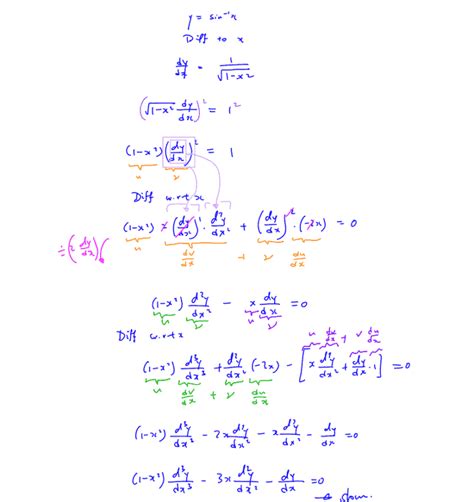 y = sin⁻¹x
Diff to x
dy/dx = 1/√(1-x²)
(√(1-x²) dy/dx)² = 1²
(1-x²) (dy/dx)² = 1
u v
Diff w.r.t x
÷(2 dy/dx) ( (1-x²) 2 (dy/dx)¹ · d²y/dx² + (dy/dx)² · (-2x) = 0
u dv/dx + v du/dx
(1-x²) d²y/dx² - x dy/dx = 0
u v u v
Diff w.r.t x
u dv/dx + v du/dx
(1-x²) d³y/dx³ + d²y/dx² (-2x) - [x d²y/dx² + dy/dx · 1] = 0
u dv/dx + v du/dx
(1-x²) d³y/dx³ - 2x d²y/dx² - x d²y/dx² - dy/dx = 0
(1-x²) d³y/dx³ - 3x d²y/dx² - dy/dx = 0
shown